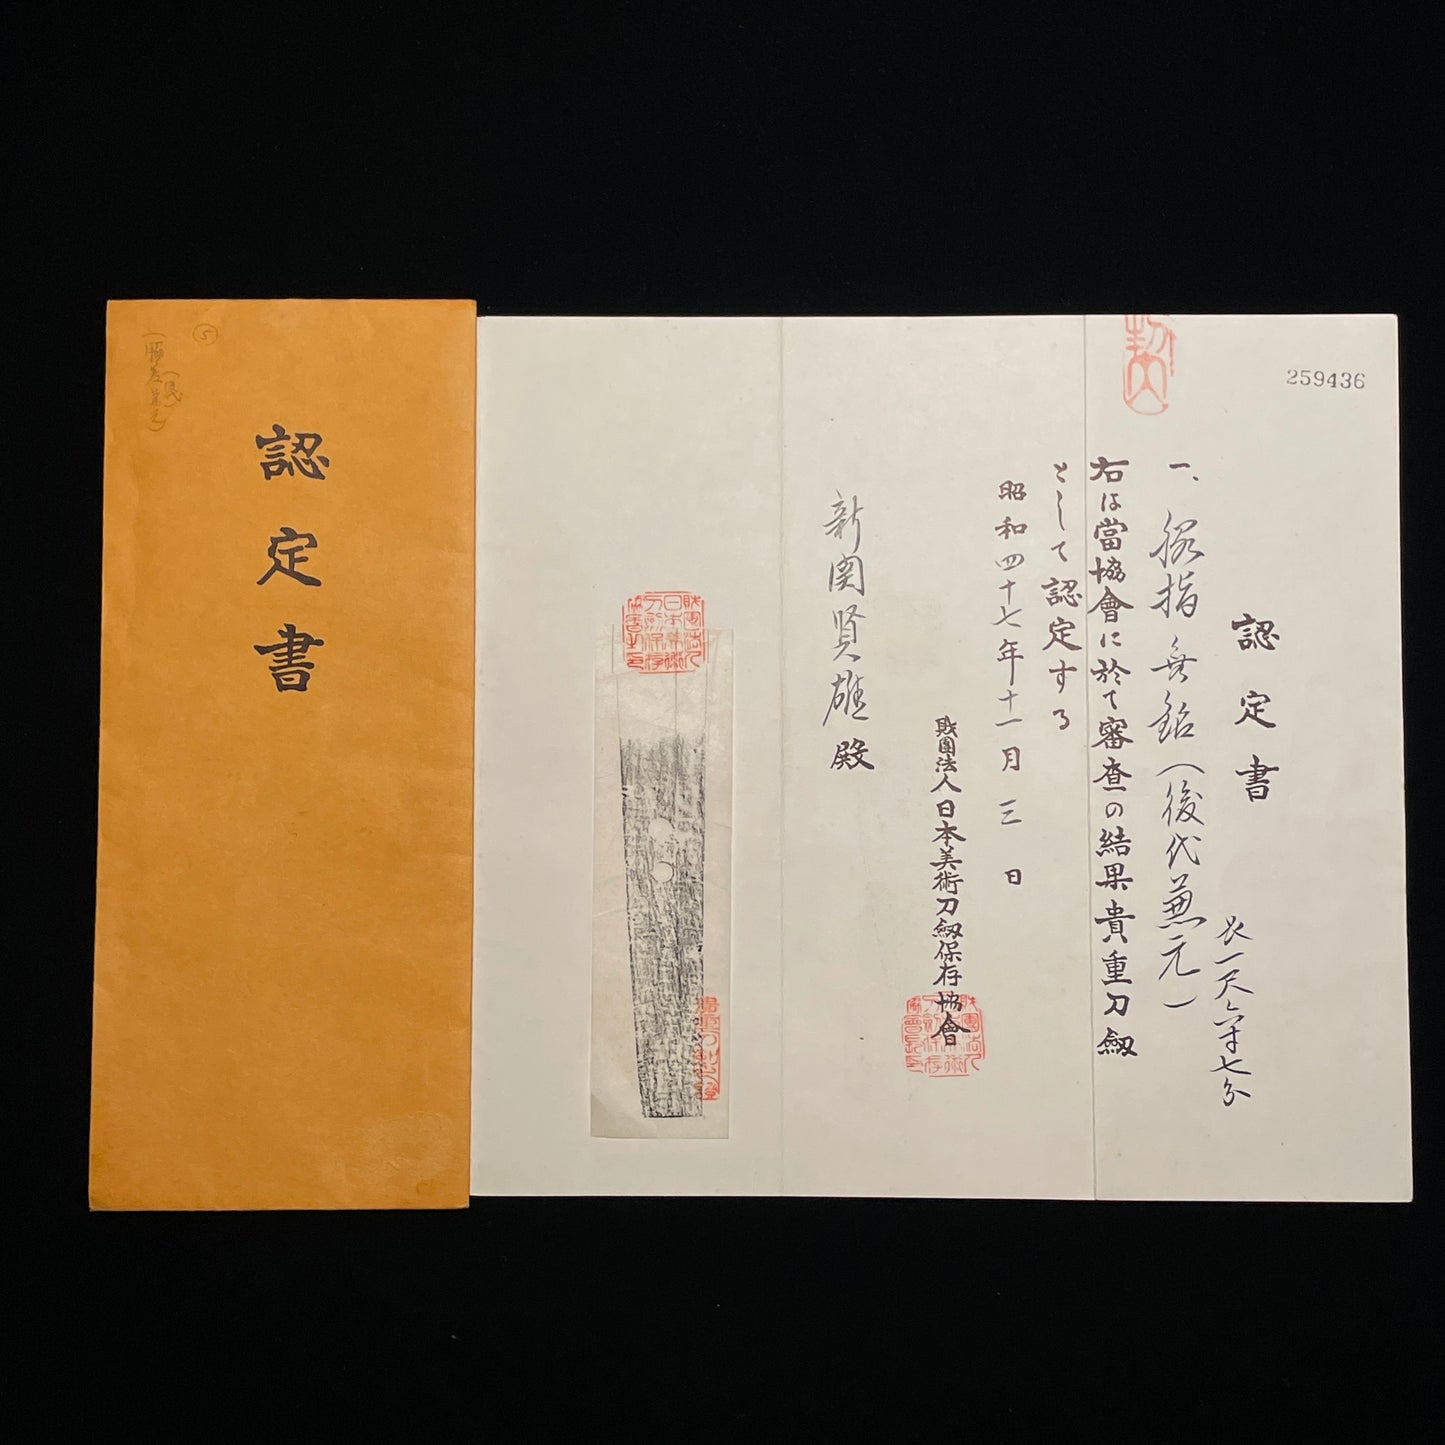 認定書
259436
認定書
一、脇指 無銘（後代兼元）
長一尺六寸七分
右は當協會に於て審査の結果貴重刀劔
として認定する
昭和四十七年十一月三日
財團法人日本美術刀劔保存協會
新関賢雄殿